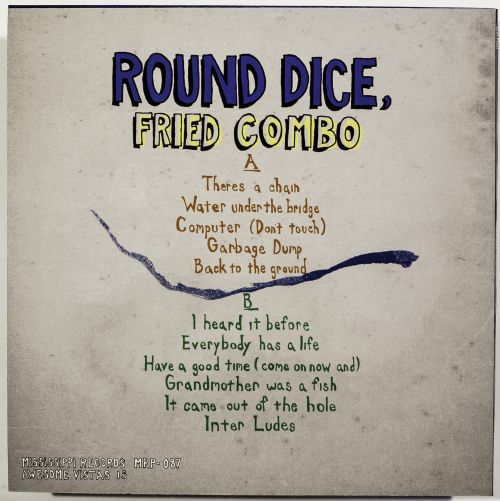 ROUND DICE,
FRIED COMBO
A
Theres a chain
Water under the bridge
Computer (Dont touch)
Garbage Dump
Back to the ground
B
I heard it before
Everybody has a life
Have a good time (come on now and)
Grandmother was a fish
It came out of the hole
Inter Ludes
MISSISSIPPI RECORDS MRP-087
AWESOME VISTAS 15